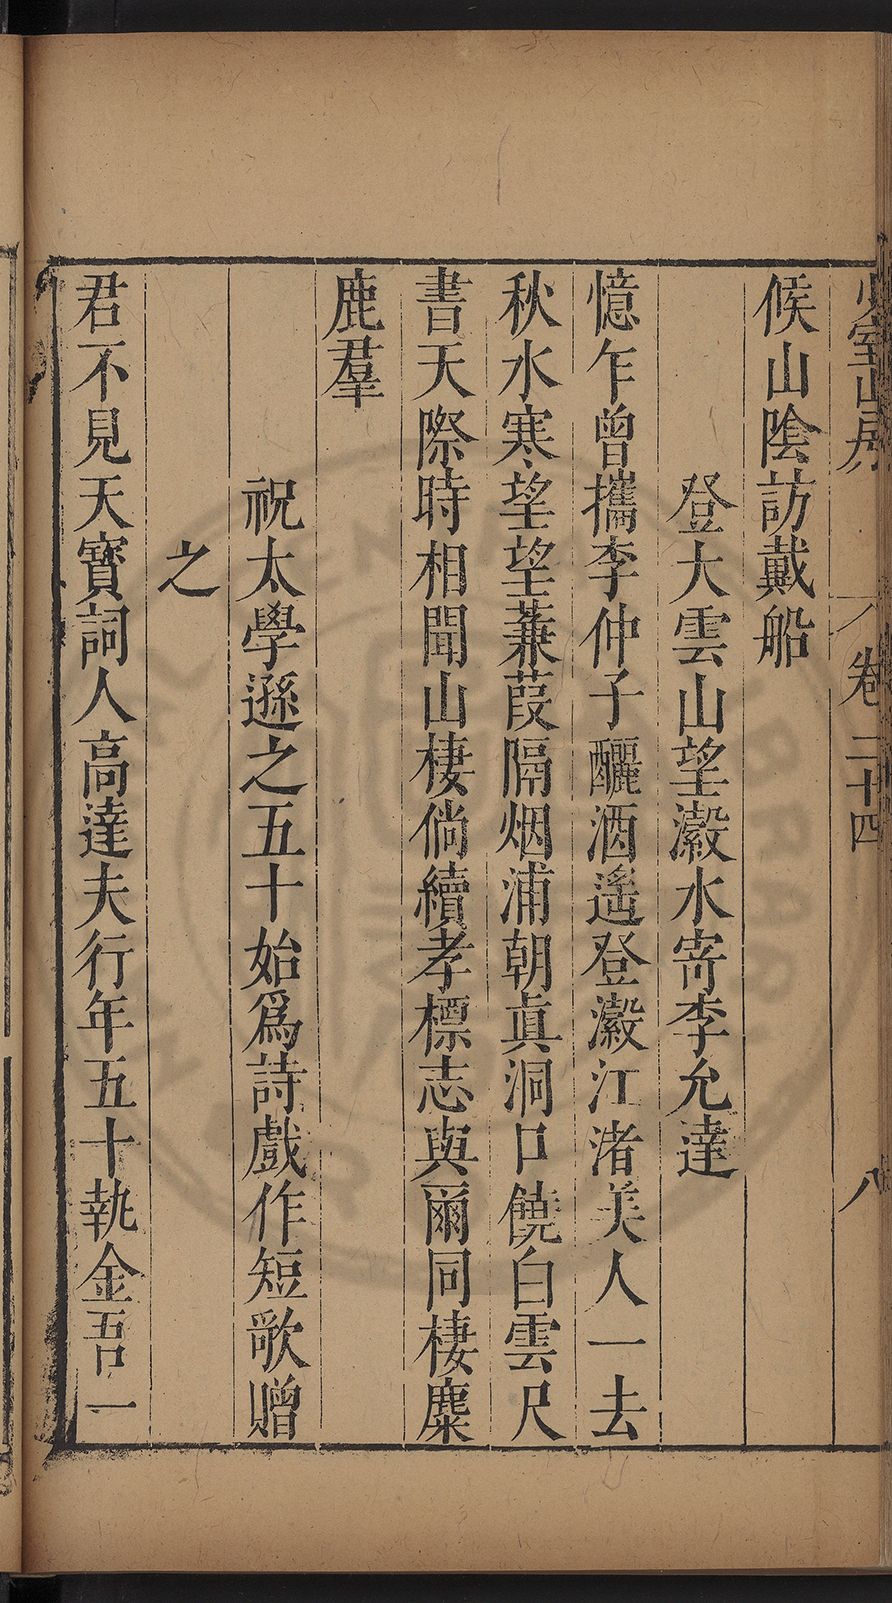 少室山房
卷二十四
八
候山陰訪戴船
登大雲山望瀫水寄李允達
憶乍曾攜李仲子釃酒遙登瀫江渚美人一去
秋水寒望望蒹葭隔烟浦朝真洞口饒白雲尺
書天際時相聞山棲倘續孝標志與爾同棲麋
鹿羣
祝太學遜之五十始為詩戲作短歌贈
之
君不見天寶詞人高達夫行年五十執金吾一